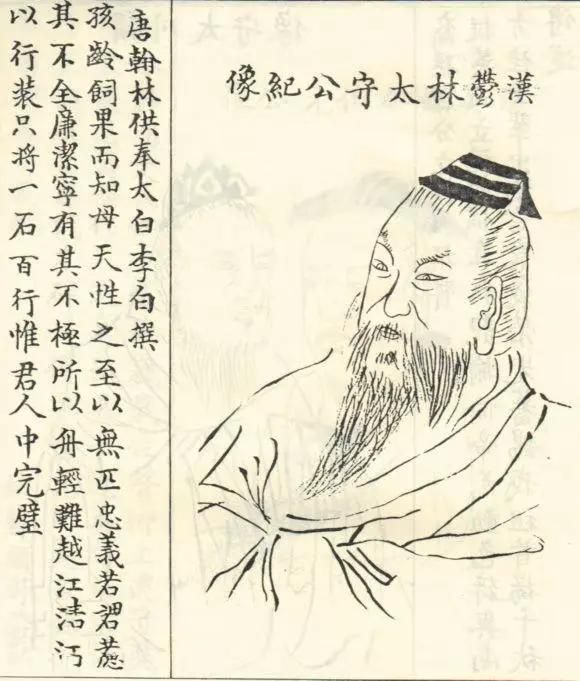 漢鬱林太守公紀像
唐翰林供奉太白李白撰
孩齡飼果而知母天性之至以無匹忠義若
其不全廉潔寧有其不極所以舟輕難越江
以行装只将一石百行惟君人中完璧